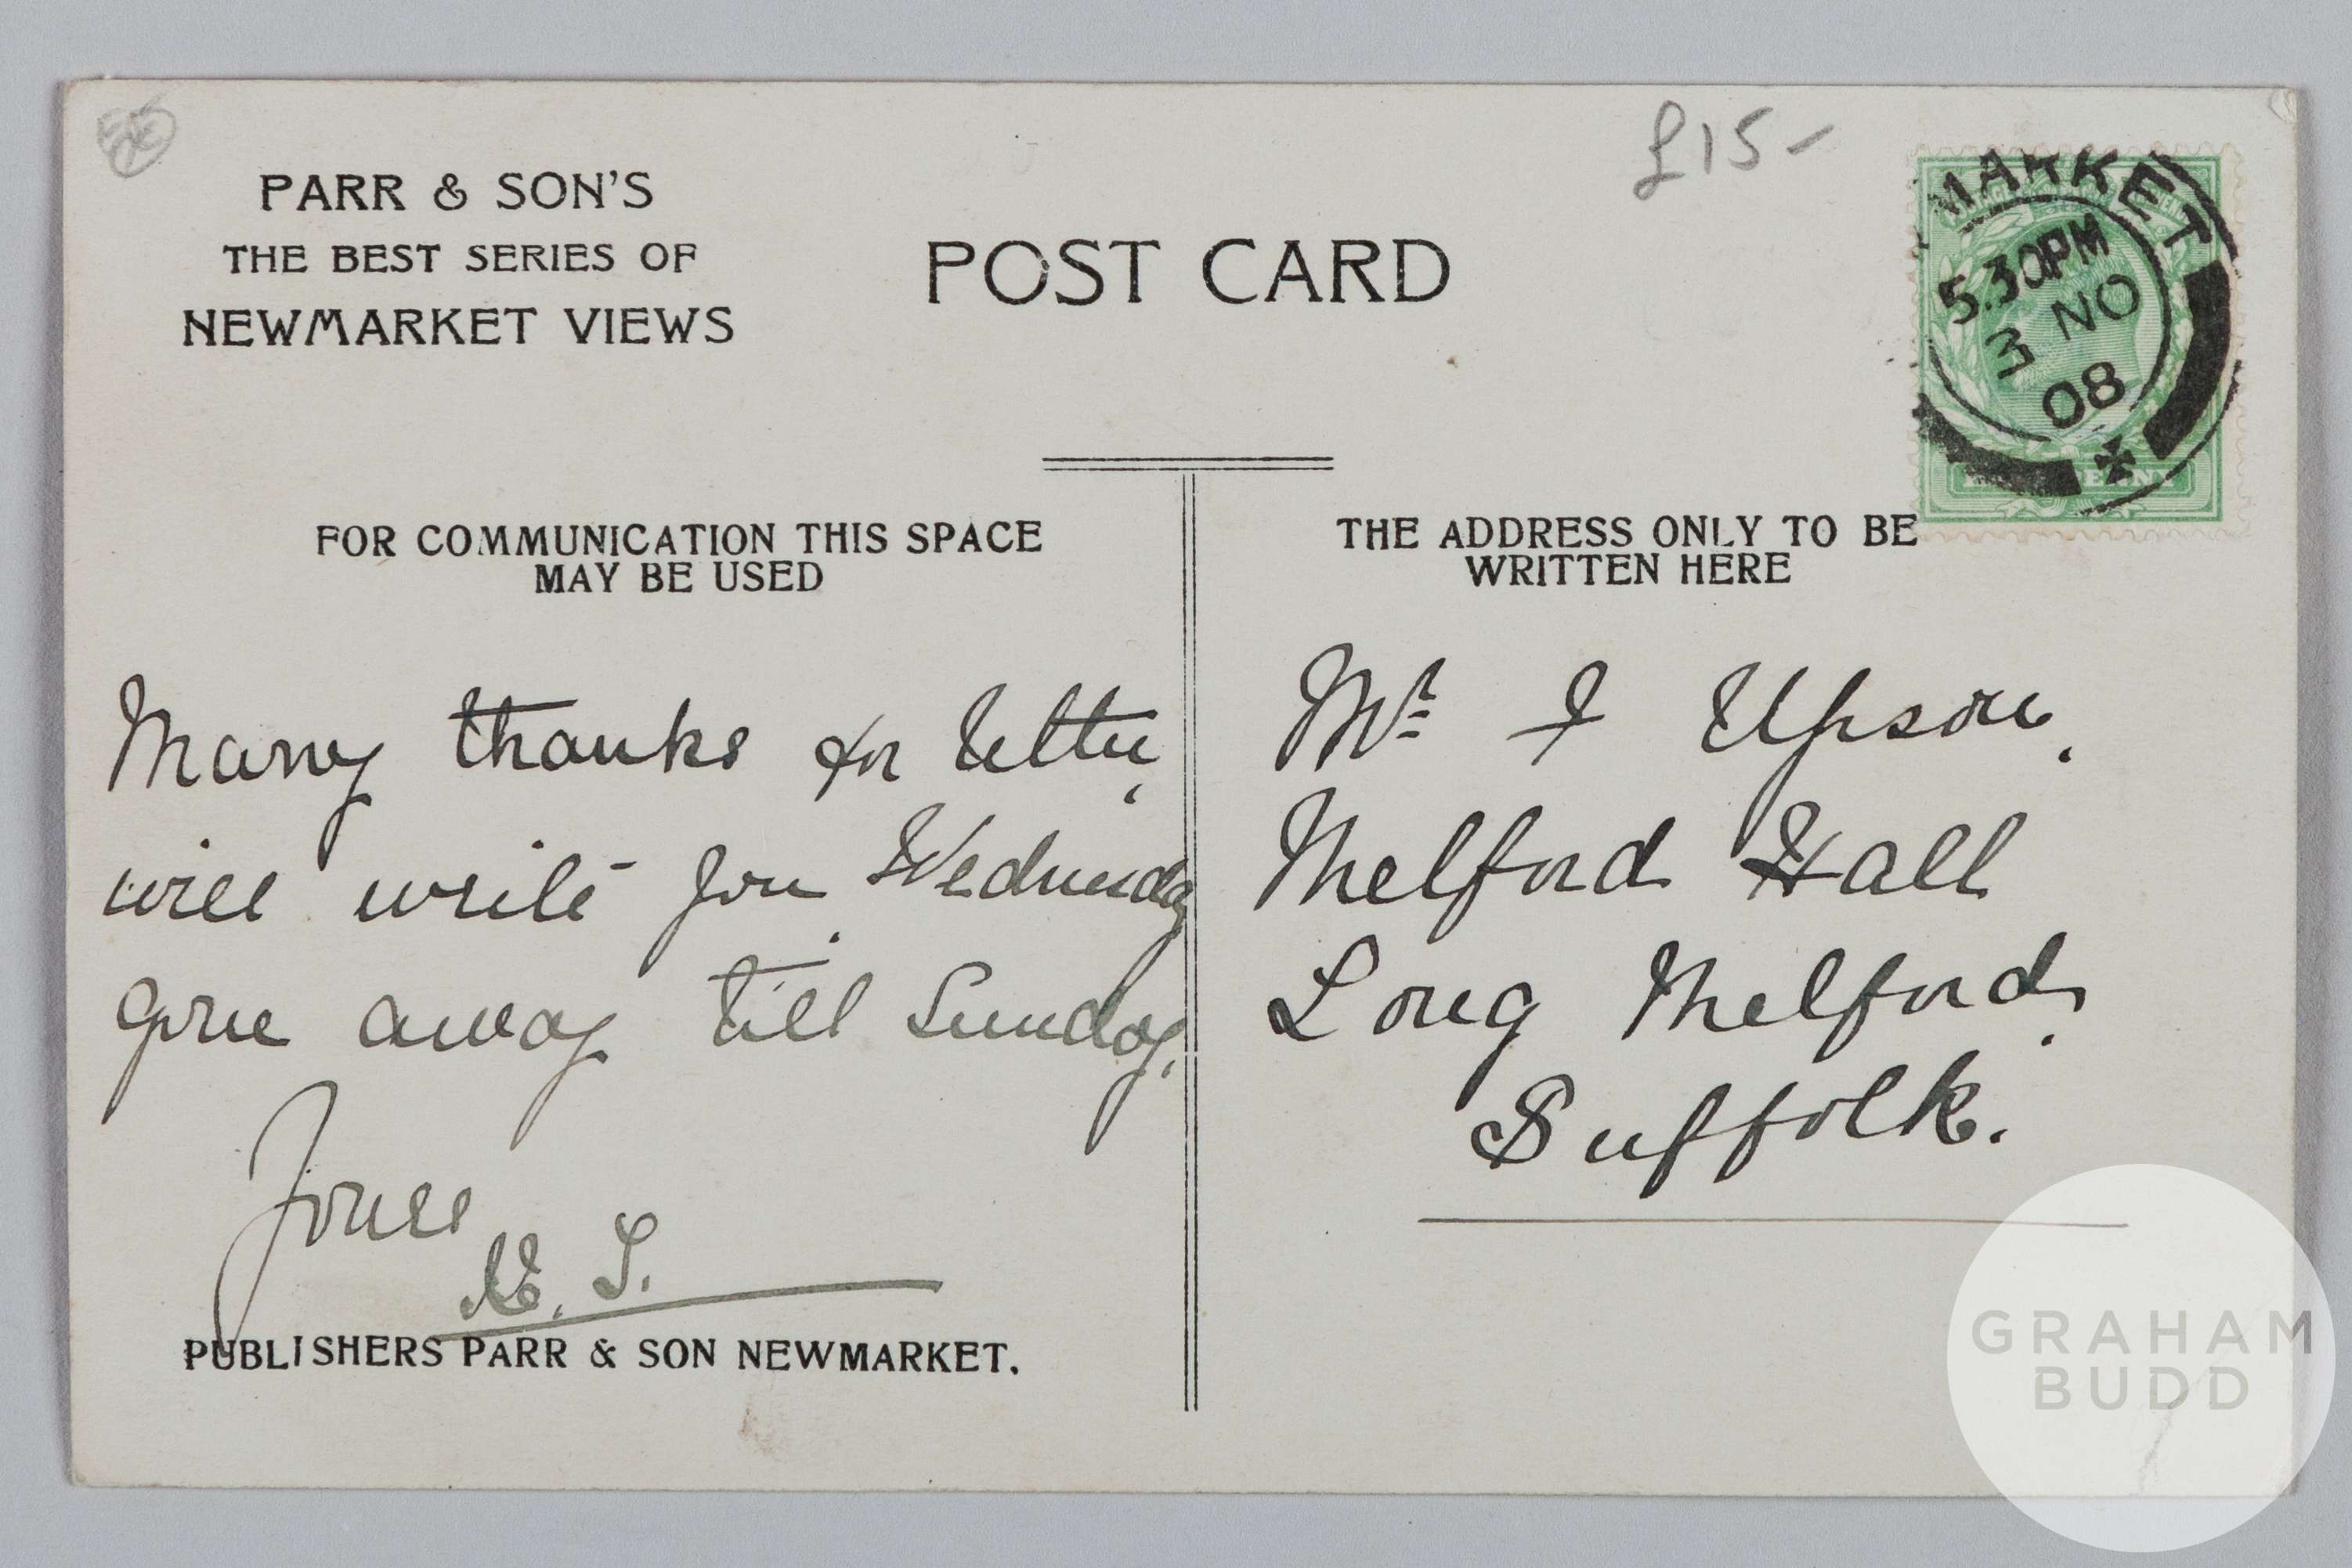 PARR & SON'S
THE BEST SERIES OF
NEWMARKET VIEWS
POST CARD
£15-
MARKET
5.30PM
3 NO
08
FOR COMMUNICATION THIS SPACE
MAY BE USED
THE ADDRESS ONLY TO BE
WRITTEN HERE
Many thanks for letter,
will write you Wednesday.
Gone away till Sunday.
Yours
PUBLISHERS PARR & SON NEWMARKET.
Mr Upson.
Melford Hall
Long Melford.
Suffolk.
GRAHAM
BUDD